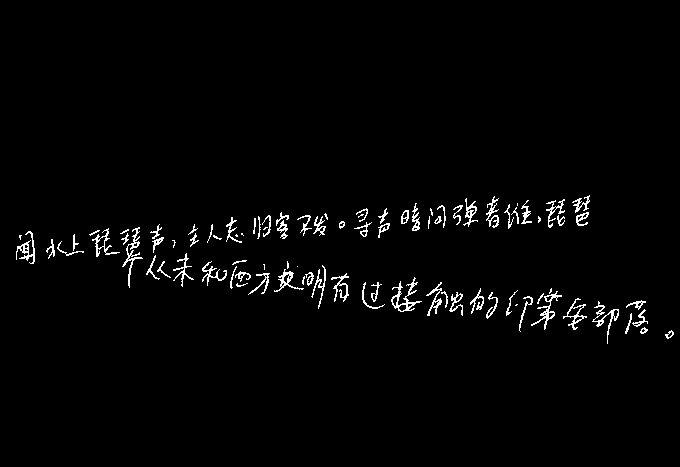 闻水上琵琶声，主人忘归客不发。寻声暗问弹者谁，琵琶
从未和西方文明有过接触的印第安部落。